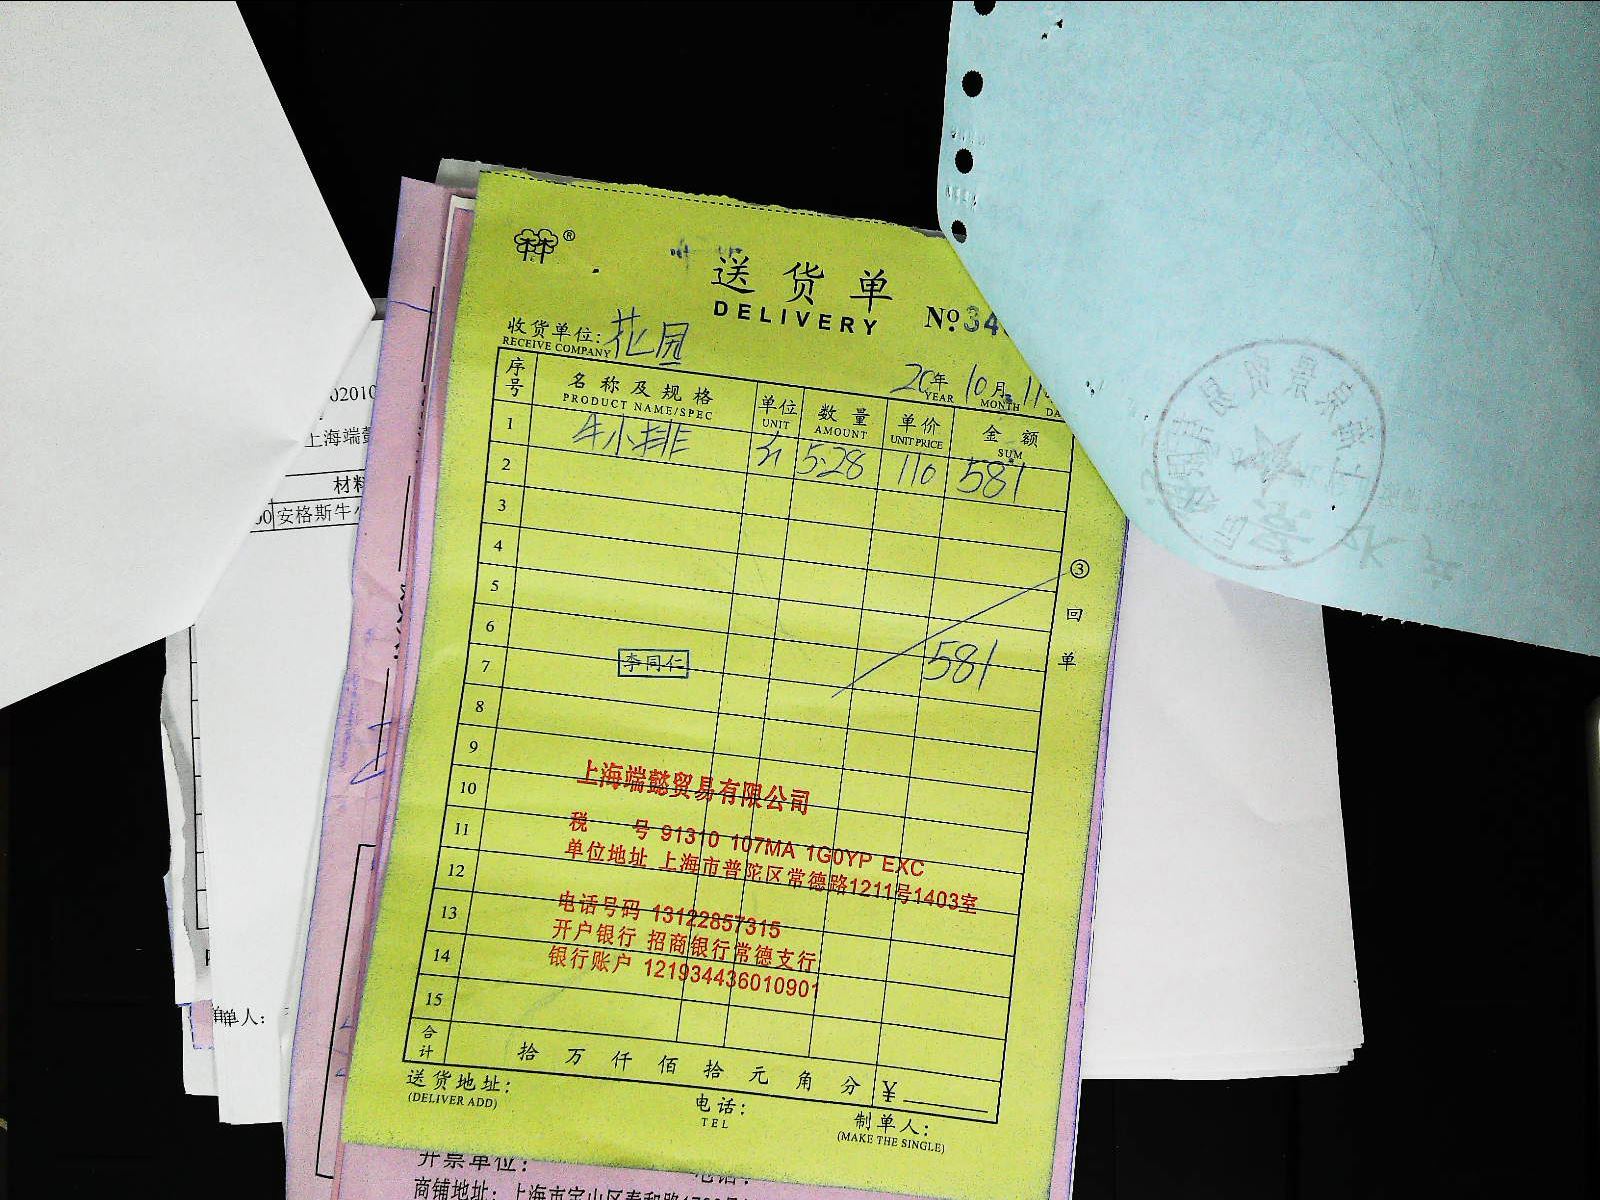 送货单
DELIVERY
No.34
收货单位: 花园
RECEIVE COMPANY
20年 10月 11
YEAR MONTH DA
序号 名称及规格 单位 数量 单价 金额
PRODUCT NAME/SPEC UNIT AMOUNT UNIT PRICE SUM
1 牛小排 5.28 110 581
2
3
4
5
6
7 李同仁 581
8
9
10
11
12
13
14
15
③回单
上海端懿贸易有限公司
税 号 91310 107MA 1G0YP EXC
单位地址 上海市普陀区常德路1211号1403室
电话号码 13122857315
开户银行 招商银行常德支行
银行账户 121934436010901
合计 拾 万 仟 佰 拾 元 角 分 ¥
送货地址: 电话: 制单人:
(DELIVER ADD) TEL (MAKE THE SINGLE)
02010
上海端懿
材料
00 安格斯牛小
单人:
开票单位: